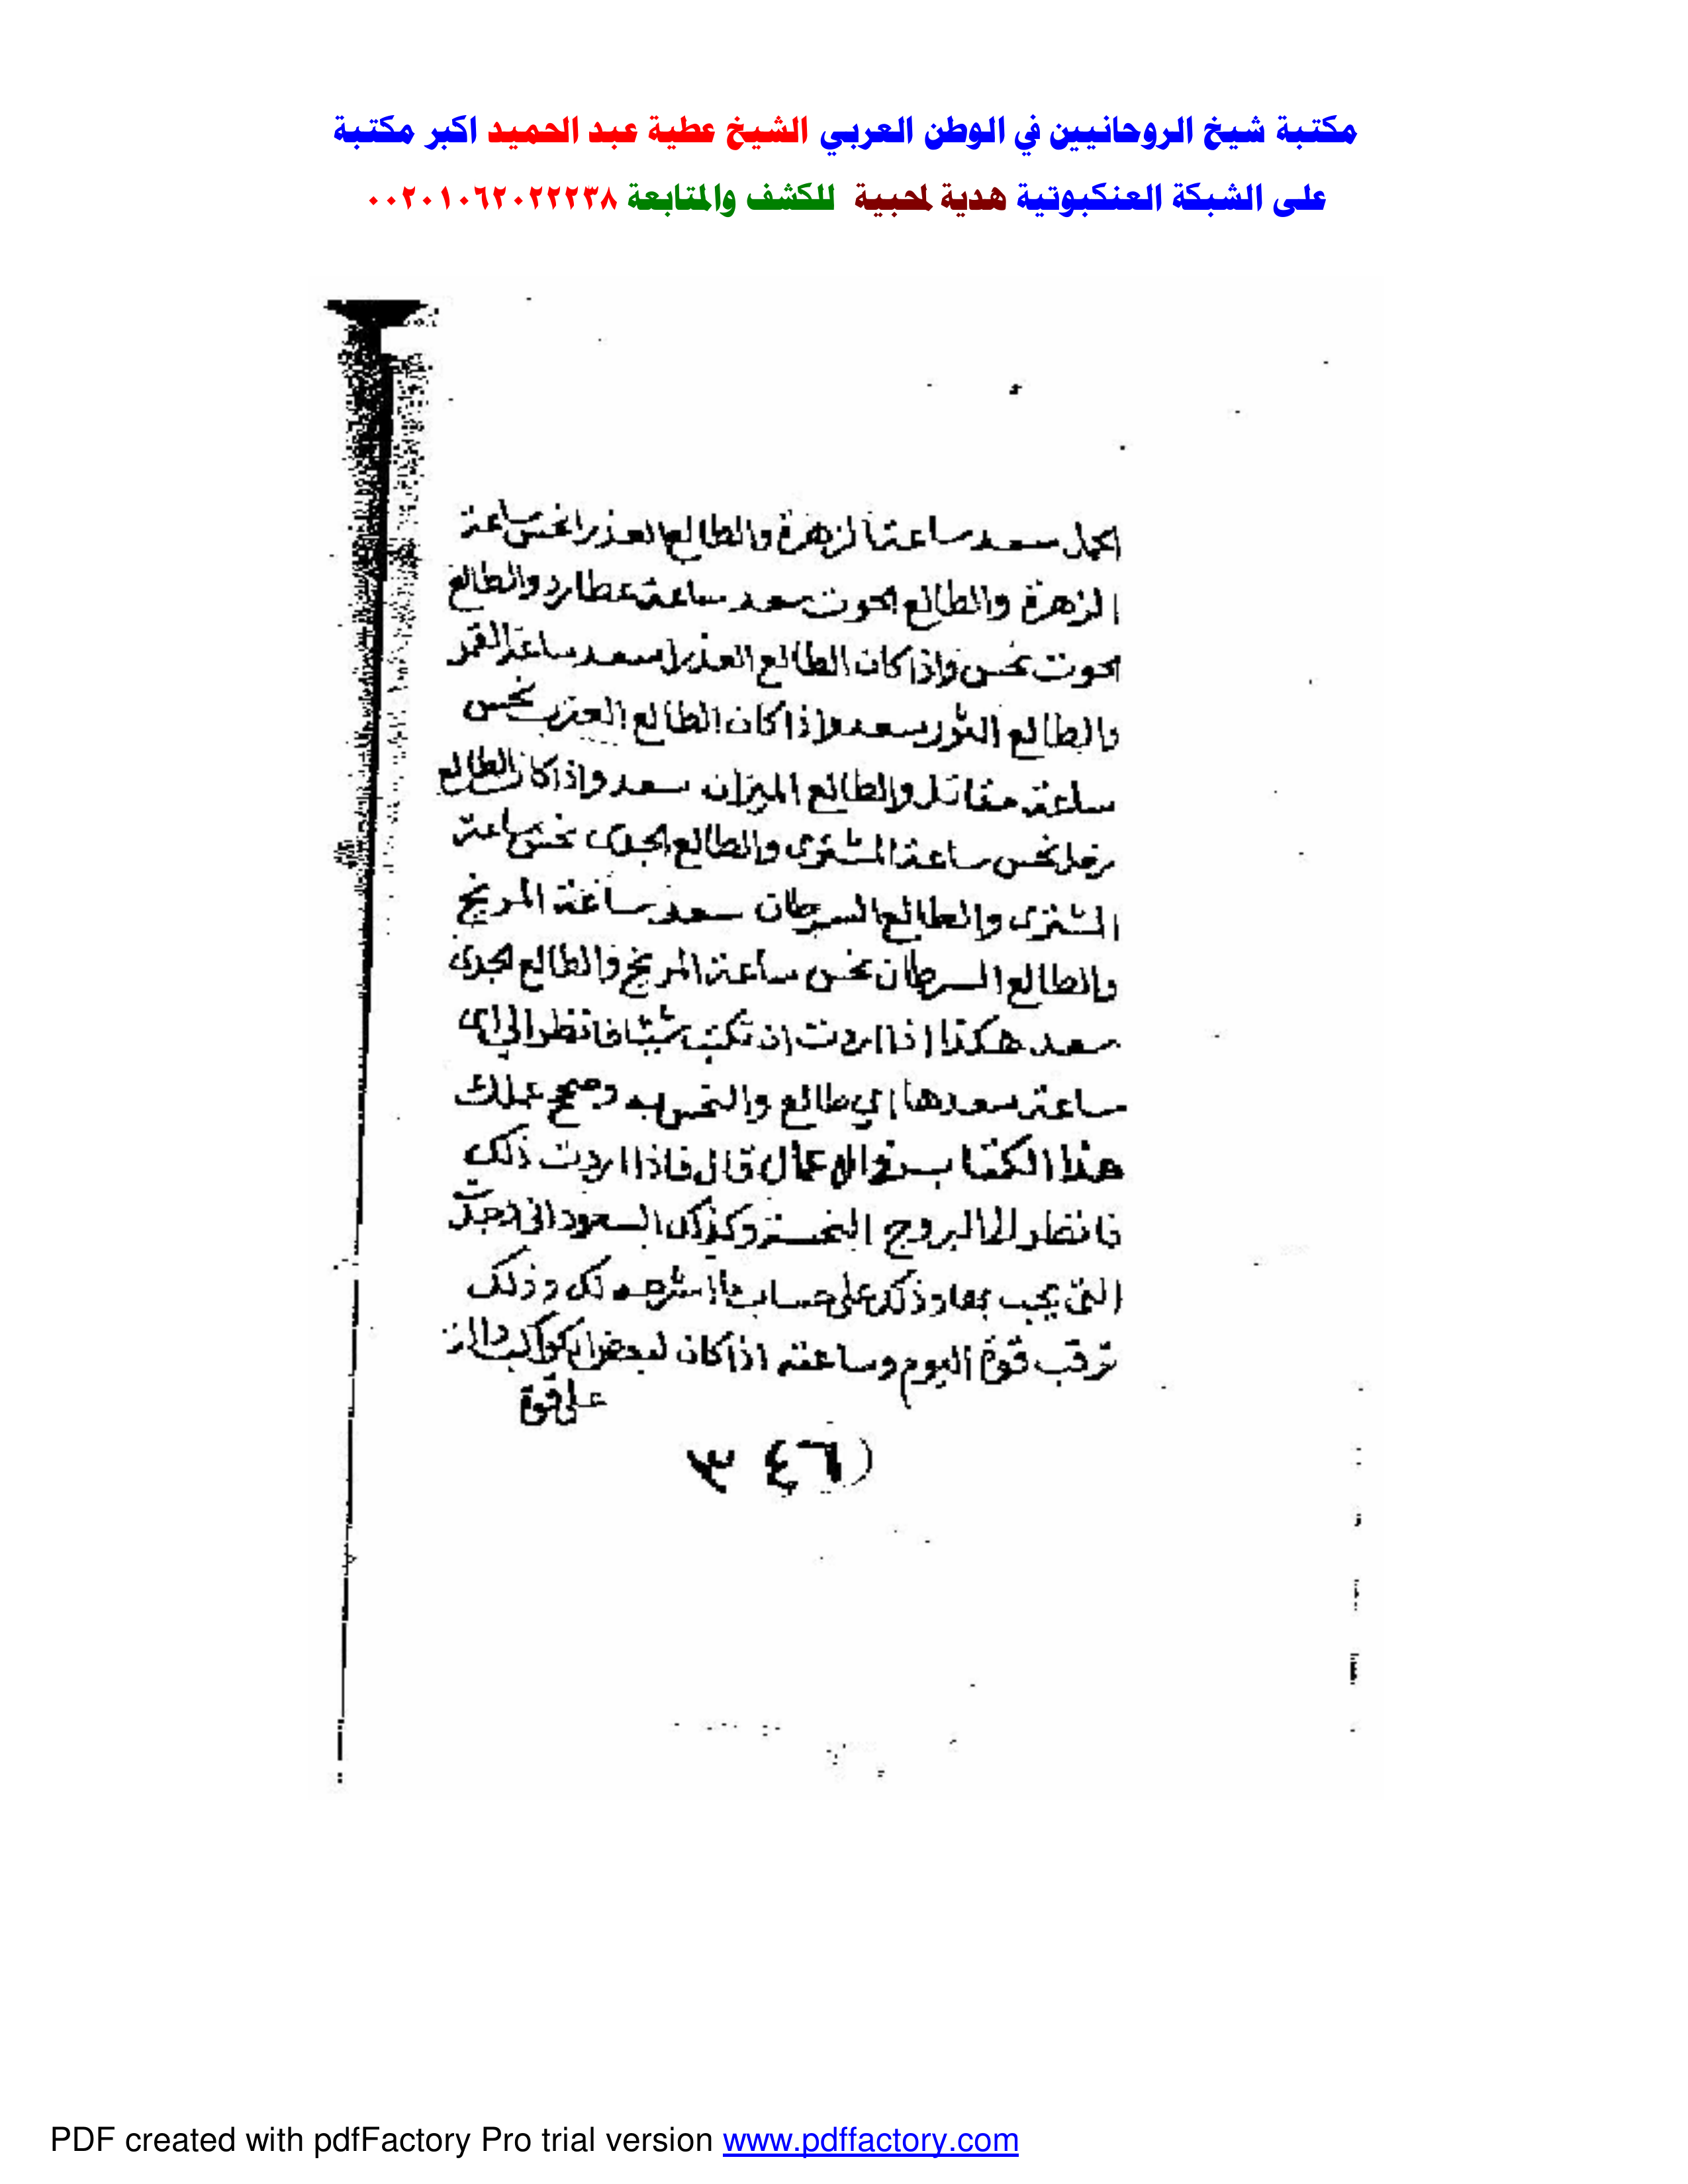 مكتبة شيخ الروحانيين في الوطن العربي الشيخ عطية عبد الحميد اكبر مكتبة
على الشبكة العنكبوتية هدية لمحبية للكشف والمتابعة ٠٠٢٠١٠٦٢٠٢٢٢٣٨
الحمل سعد ساعة الزهرة والطالع العذرا نحس ساعة
الزهرة والطالع الحوت سعد ساعة عطارد والطالع
الحوت نحس واذا كان الطالع العذرا سعد ساعة القمر
والطالع الثور سعد واذا كان الطالع العقرب نحس
ساعة مقاتل والطالع الميزان سعد واذا كان الطالع
نحس ساعة المشترى والطالع الجدى نحس ساعة
المشترى والطالع السرطان سعد ساعة المريخ
والطالع السرطان نحس ساعة المريخ والطالع الجدى
سعد هكذا اذا اردت ان تكتب شيئا فانظر الى اى
ساعة سعدها اي طالع والنحس به وصحح عملك
هذا الكتاب قال فاذا اردت ذلك
فانظر الى البروج النحسة وكذلك السعود
التى يجب بها وذلك على حساب ما لك وذلك
ترقب قوة اليوم وساعته اذا كان لبعض الكواكب
على قوة
(٦٤ ٣
PDF created with pdfFactory Pro trial version www.pdffactory.com